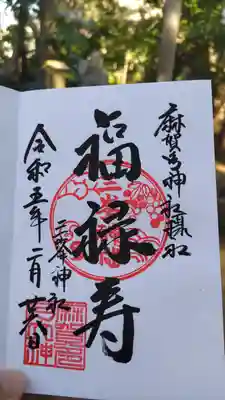 麻賀多神社摂社
福禄寿
三峯神社
令和五年二月廿六日